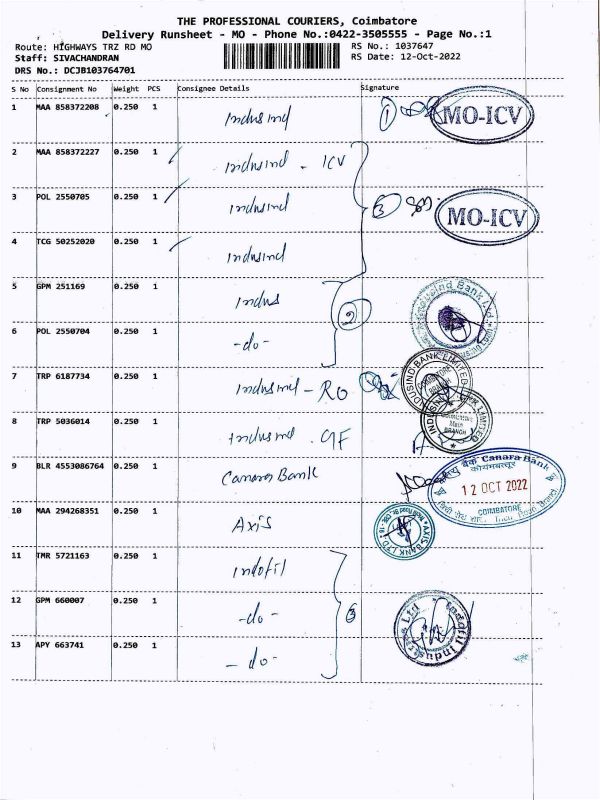 THE PROFESSIONAL COURIERS, Coimbatore
Delivery Runsheet - MO - Phone No.:0422-3505555 - Page No.:1
Route: HIGHWAYS TRZ RD MO
RS No.: 1037647
Staff: SIVACHANDRAN
RS Date: 12-Oct-2022
DRS No.: DCJB103764701
S No Consignment No Weight PCS Consignee Details Signature
1 MAA 858372208 0.250 1 Indusind 1 MO-ICV
2 MAA 858372227 0.250 1 Indusind - ICV
3 POL 2550705 0.250 1 Indusind 3 MO-ICV
4 TCG 50252020 0.250 1 Indusind
5 GPM 251169 0.250 1 Indus 2 Bank Ltd
6 POL 2550704 0.250 1 -do-
7 TRP 6187734 0.250 1 Indusind - RO INDUSIND BANK LIMITED COIMBATORE
8 TRP 5036014 0.250 1 Indusind . GF LIMITED Main BRANCH
9 BLR 4553086764 0.250 1 Canara Bank
बैंक Canara Bank
कोयम्बत्तूर
12 OCT 2022
COIMBATORE
10 MAA 294268351 0.250 1 Axis AXIS BANK LTD
11 TMR 5721163 0.250 1 Indofil
12 GPM 660007 0.250 1 -do- 3 Indofil Industries Ltd
13 APY 663741 0.250 1 -do-